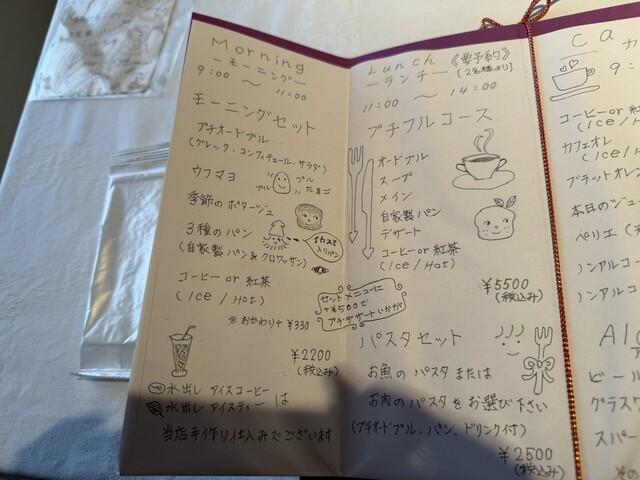 Morning
ーモーニングー
9:00 〜 11:00
モーニングセット
プチオードブル
(グレック、コンフィチュール、サラダ)
ウフマヨ
プル プル たまご
季節の ポタージュ
3種の パン
(自家製 パン & クロワッサン)
イカスミ入りパン
コーヒー or 紅茶
(Ice / Hot)
※ おかわり + ¥330
¥2200
(税込み)
水出し アイスコーヒー
水出し アイスティー は
当店手作り仕込みでございます
Lunch 《要予約》
ーランチー [2名様より]
11:00 〜 14:00
プチフルコース
オードブル
スープ
メイン
自家製 パン
デザート
コーヒー or 紅茶
(Ice / Hot)
¥5500
(税込み)
セットメニューに
+¥500で
プチデザートいかが
パスタセット
お魚の パスタ または
お肉の パスタ を お選び 下さい
(プチオードブル、パン、ドリンク付)
¥2500
(税込み)
Ca
カ
9:
コーヒー or 紅
(Ice / H
カフェオレ
(Ice / H
ブラッドオレン
本日のジュ
ペリエ
ノンアルコー
ノンアルコー
Al
ビール
グラスワ
スパー
その